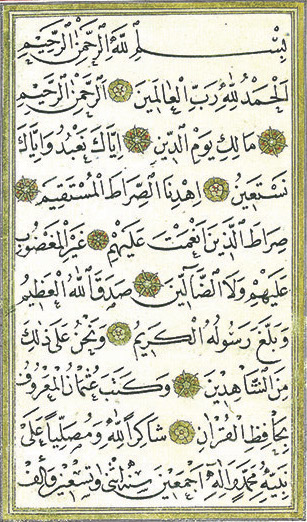 بِسْمِ اللّٰهِ الرَّحْمٰنِ الرَّحِيْمِ
اَلْحَمْدُ لِلّٰهِ رَبِّ الْعَالَمِينَ الرَّحْمٰنِ الرَّحِيْمِ
مَالِكِ يَوْمِ الدِّينِ اِيَّاكَ نَعْبُدُ وَاِيَّاكَ
نَسْتَعِينُ اِهْدِنَا الصِّرَاطَ الْمُسْتَقِيمَ
صِرَاطَ الَّذِينَ اَنْعَمْتَ عَلَيْهِمْ غَيْرِ الْمَغْضُوبِ
عَلَيْهِمْ وَلَا الضَّالِّينَ صَدَقَ اللّٰهُ الْعَظِيمُ
وَبَلَّغَ رَسُولُهُ الْكَرِيمُ وَنَحْنُ عَلٰى ذٰلِكَ
مِنَ الشَّاهِدِينَ وَكَتَبَهُ عُثْمَانُ الْمَعْرُوفُ
بِحَافِظِ الْقُرْاٰنِ شَاكِرًا لِلّٰهِ وَمُصَلِّيًا عَلٰى
نَبِيِّهِ مُحَمَّدٍ وَاٰلِهِ اَجْمَعِينَ سَنَةَ اثْنَتَيْ وَتِسْعِينَ وَاَلْف